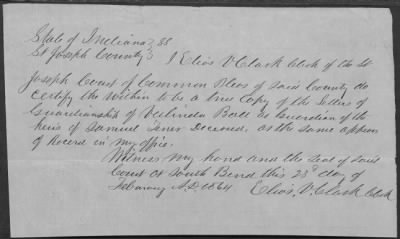 State of Indiana } SS
St Joseph County } I Elias V Clark Clerk of the St
Joseph Court of Common Pleas of said County do
certify the within to be a true Copy of the Letters of
Guardianship of Bode as Guardian of the
heirs of Samuel Deceased, as the same appears
of Record in my office.
Witness my hand and the seal of said
Court at South Bend this 23d day of
February A.D. 1864 Elias. V. Clark Clerk